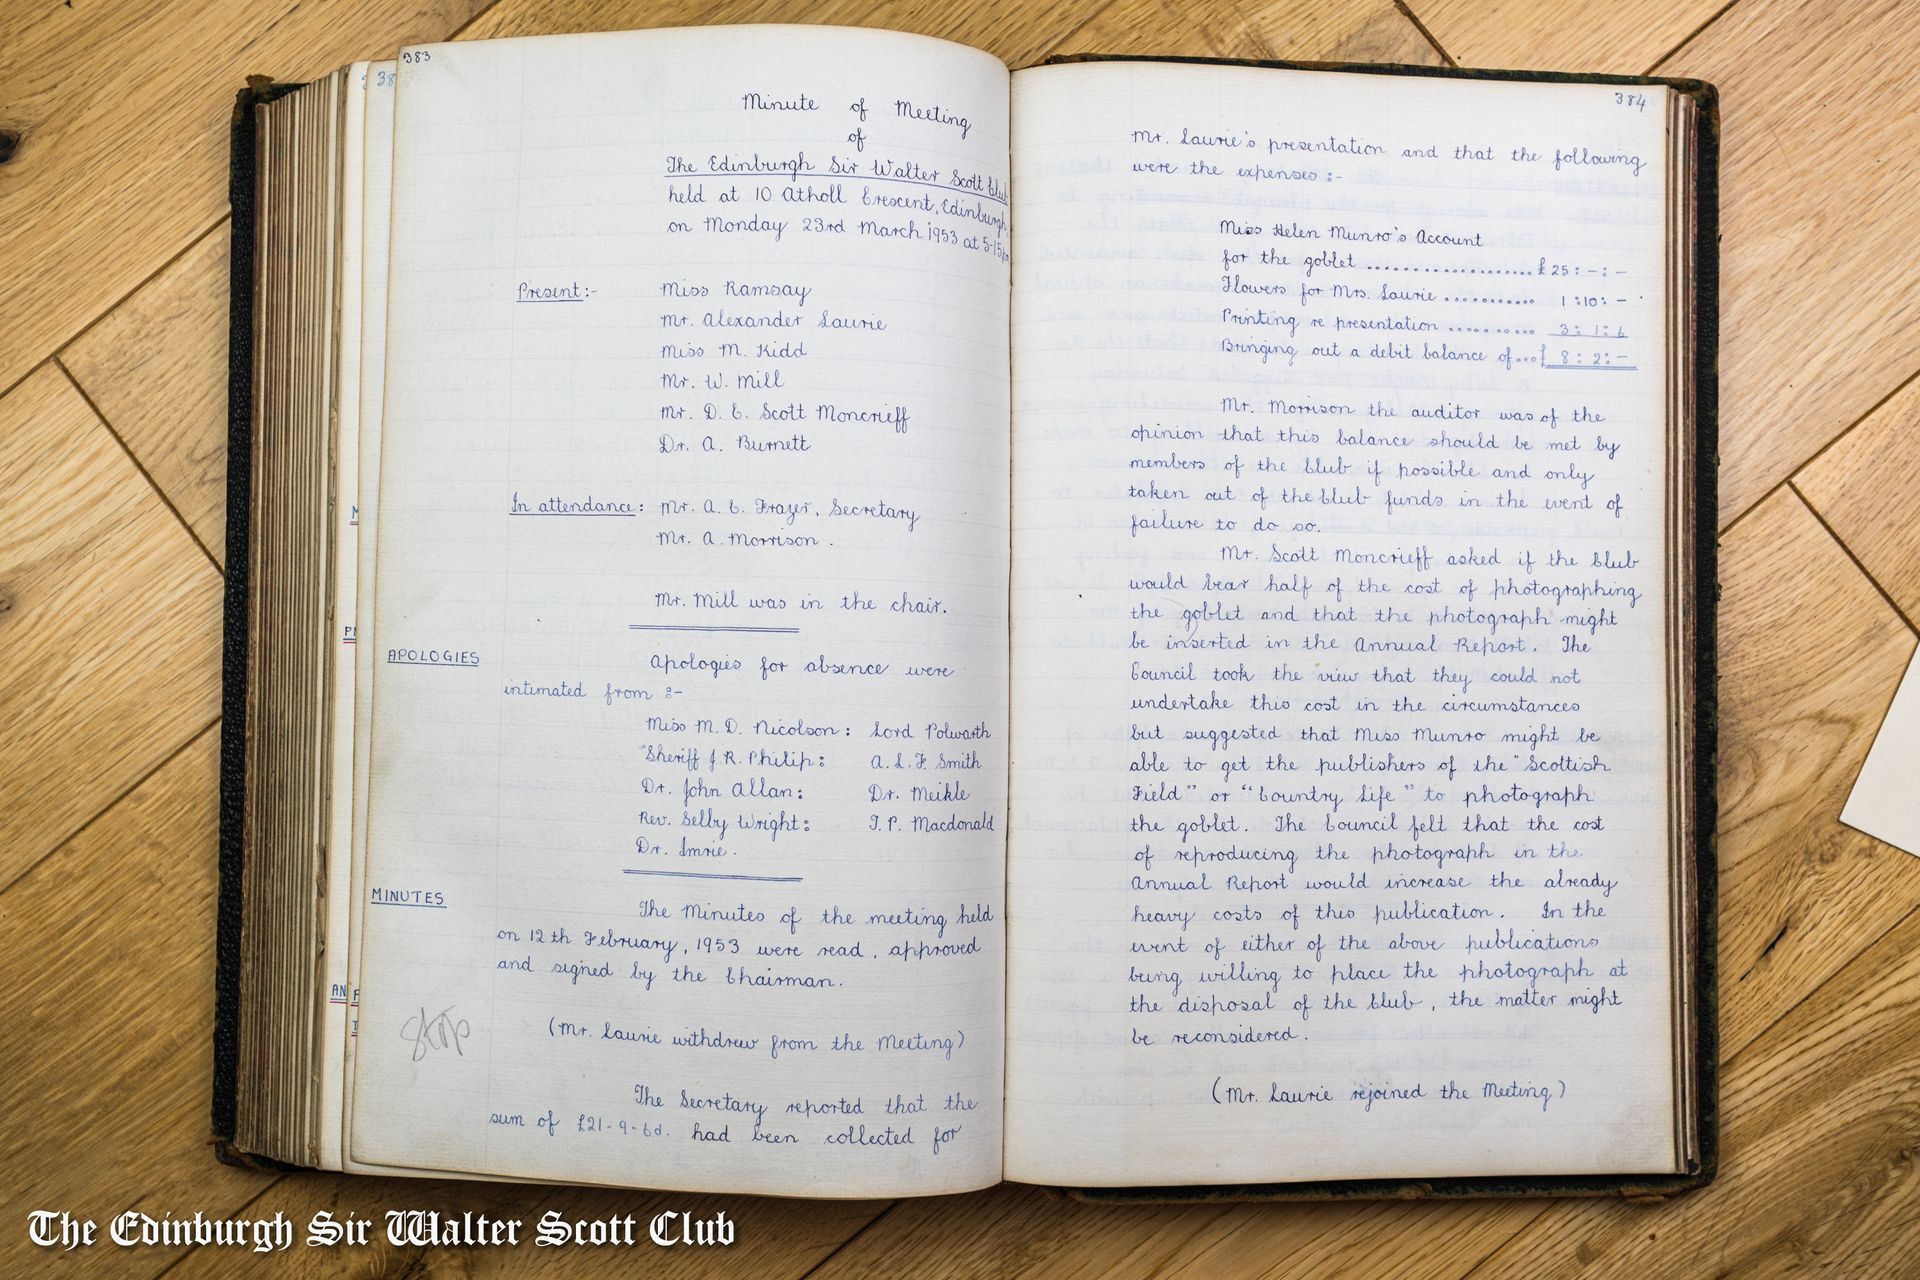 383
Minute of Meeting
of
The Edinburgh Sir Walter Scott Club
held at 10 Atholl Crescent, Edinburgh
on Monday 23rd March 1953 at 5-15pm
Present:- Miss Ramsay
Mr. Alexander Laurie
Miss M. Kidd
Mr. W. Mill
Mr. D. C. Scott Moncrieff
Dr. A. Burnett
In attendance: Mr. A. C. Frazer, Secretary
Mr. A. Morrison.
Mr. Mill was in the chair.
APOLOGIES
Apologies for absence were
intimated from :-
Miss M. D. Nicolson: Lord Polwarth
Sheriff J. R. Philip: A. L. F. Smith
Dr. John Allan: Dr. Meikle
Rev. Selby Wright: I. P. Macdonald
Dr. Imrie.
MINUTES
The Minutes of the meeting held
on 12th February, 1953 were read, approved
and signed by the Chairman.
Stop
(Mr. Laurie withdrew from the Meeting)
The Secretary reported that the
sum of £21-9-6d. had been collected for
384
Mr. Laurie's presentation and that the following
were the expenses :-
Miss Helen Munro's Account
for the goblet .................... £25:-:-
Flowers for Mrs. Laurie ........... 1:10:-
Printing re presentation .......... 3:1:6
Bringing out a debit balance of...£ 8:2:-
Mr. Morrison the auditor was of the
opinion that this balance should be met by
members of the Club if possible and only
taken out of the Club funds in the event of
failure to do so.
Mr. Scott Moncrieff asked if the Club
would bear half of the cost of photographing
the goblet and that the photograph might
be inserted in the Annual Report. The
Council took the view that they could not
undertake this cost in the circumstances
but suggested that Miss Munro might be
able to get the publishers of the "Scottish
Field" or "Country Life" to photograph
the goblet. The Council felt that the cost
of reproducing the photograph in the
Annual Report would increase the already
heavy costs of this publication. In the
event of either of the above publications
being willing to place the photograph at
the disposal of the Club, the matter might
be reconsidered.
(Mr. Laurie rejoined the Meeting)
The Edinburgh Sir Walter Scott Club